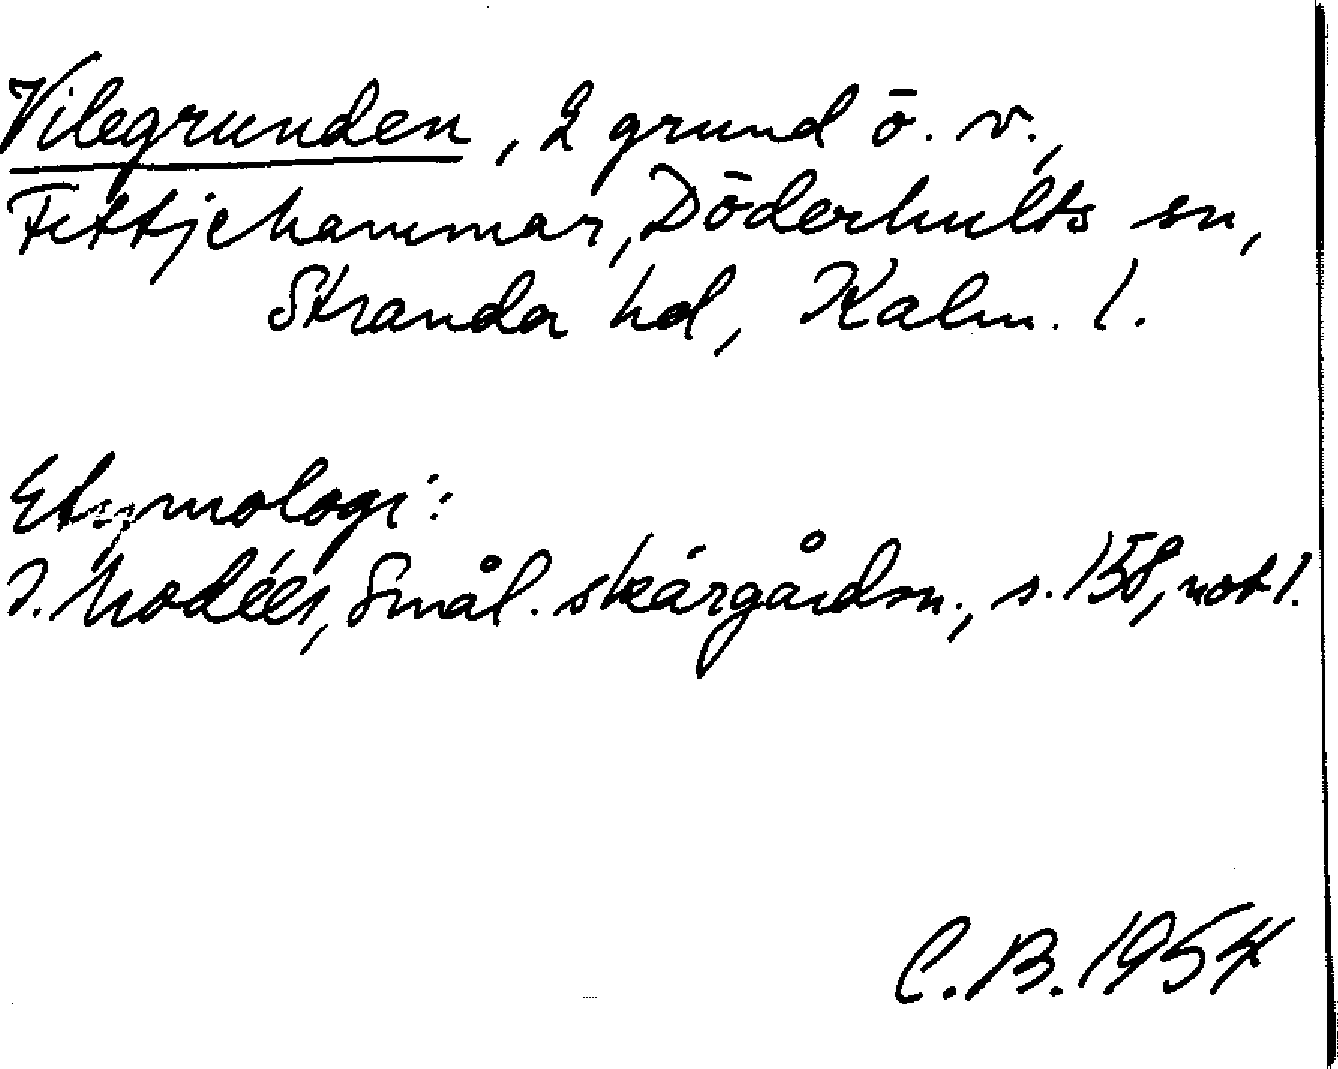 Vilegrunden, 2 grund ö. v.,
Fittjehammar, Döderhults sn,
Stranda hd, Kalm. l.
Etymologi:
I. Modéer, Smål. skärgårdsn., s. 158, not 1.
C.B. 1954